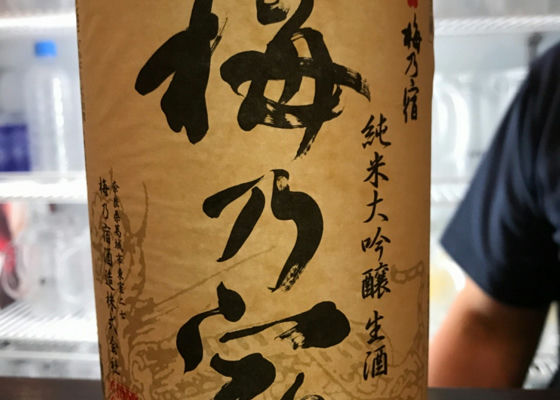 梅乃宿
純米大吟醸 生酒
梅乃宿
奈良県葛城市東室二七
梅乃宿酒造株式会社